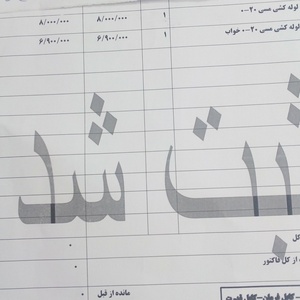 لوله کشی مسی ۲۰-۰ ۱ ۸/۰۰۰/۰۰۰ ۸/۰۰۰/۰۰۰
لوله کشی مسی ۲۰-۰ خواب ۱ ۶/۹۰۰/۰۰۰ ۶/۹۰۰/۰۰۰
ثبت شد
کل ۰
از کل فاکتور ۰
مانده از قبل ۰